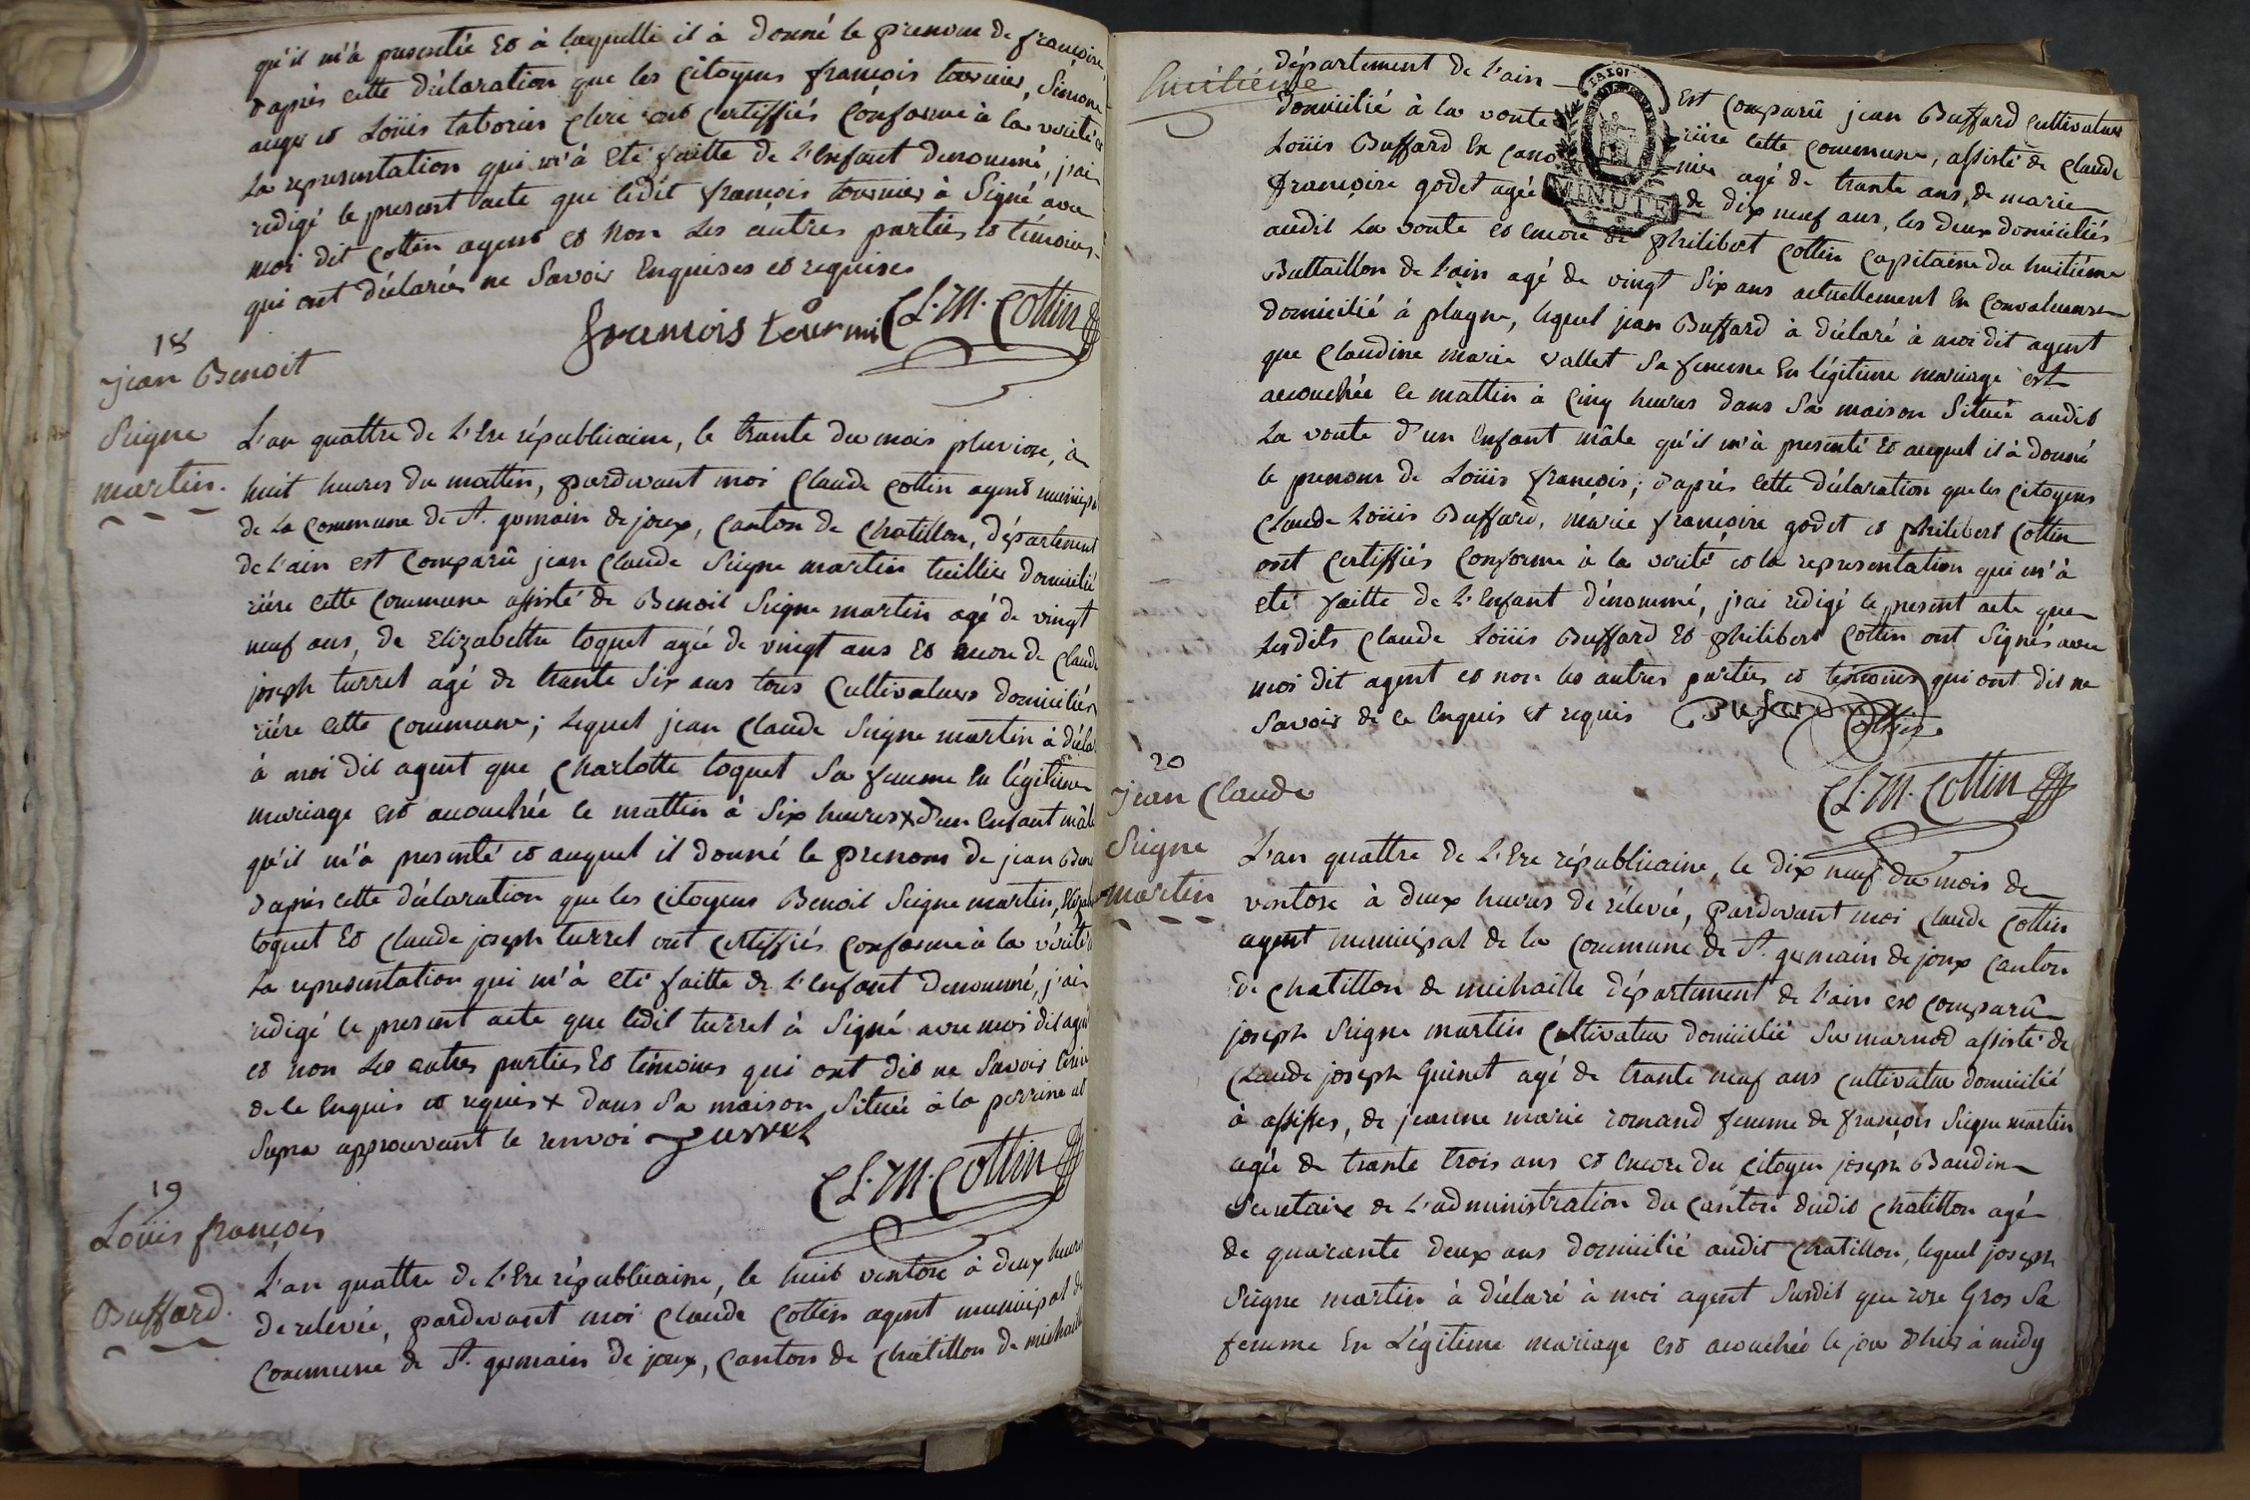 qu'il m'à presentée et à laquelle il à donné le prenom de françoise,
d'après cette déclaration que les citoyens françois tournier, Simone
auger et Loüis taborin clerc ont certiffiés conforme à la verité et
La representation qui m'à eté faitte de l'enfant denommé, j'ai
redigé le present acte que ledit françois tournier à Signé avec
moi dit Cottin agent et Non Les autres parties et témoins
qui ont déclarés ne Savoir Enquises et requises
francois tournié CL.M. Cottin
18
jean Benoit
Seigne
martin.
L'an quattre de L'Ere républicaine, le trante du mois pluviose, à
huit heures du mattin, pardevant moi Claude Cottin agent municipal
de La Commune de St. germain de joux, Canton de Chatillon, département
de L'ain est Comparû jean Claude Seigne martin tuillier domicilié
riére cette Commune assisté de Benoit Seigne martin agé de vingt
neuf ans, de Elizabetthe toquet agée de vingt ans et encore de Claude
joseph turrel agé de trante Six ans tous Cultivateurs domiciliés
riére cette Commune; Lequel jean Claude Seigne martin à décla
à moi dit agent que Charlotte toquet Sa femme En légitime
mariage est accouchée ce mattin à Six heures x d'un Enfant mâle
qu'il m'à presenté et auquel il donné le prenom de jean Ben
d'après cette déclaration que les Citoyens Benoit Seigne martin, Eliza
toquet Et Claude joseph turrel ont certiffiés conforme à la vérité
La representation qui m'à eté faitte de L'enfant denommé, j'ai
redigé le present acte que ledit turrel à Signé avec moi dit agent
et non Les autres parties Et témoins qui ont dit ne Savoir Ecrire
de ce Enquis et requis x dans Sa maison Située à la perrine ut
Supra approuvant le renvoi Turrel
CL.M. Cottin
19
Loüis françois
Buffard.
L'an quattre de L'Ere républicaine, le huit ventose à deux heures
de relevée, pardevant moi Claude Cottin agent municipal de
Commune de St. germain de joux, Canton de Chatillon de michaille
huitiéme
département de L'ain est Comparû jean Buffard Cultivateur
domicilié à la voute riére Cette Commune, assisté de Claude
Loüis Buffard Ex canonnier agé de trante ans, de marie
françoise godet agée de dix neuf ans, les deux domiciliés
audit La voute et encore de philibert Cottin Capitaine du huitiéme
Battaillon de L'ain agé de vingt Six ans actuellement En Convalecence
domicilié à plagne, lequel jean Buffard à déclaré à moi dit agent
que Claudine marie vallet Sa femme En légitime mariage est
accouchée ce mattin à Cinq heures dans Sa maison Située audit
La voute d'un Enfant mâle qu'il m'à presenté Et auquel il à donné
le prenom de Loüis françois; d'après cette déclaration que les Citoyens
Claude Loüis Buffard, marie françoise godet et philibert Cottin
ont certiffiés conforme à la verité et la representation qui m'à
eté faitte de L'Enfant dénommé, j'ai redigé le present acte que
Lesdits Claude Loüis Buffard Et philibert Cottin ont Signés avec
moi dit agent et non les autres parties et témoins qui ont dit ne
Savoir de ce Enquis et requis Bufard Cottin
CL.M. Cottin
MINUTE
20
jean Claude
Seigne
martin
L'an quattre de L'Ere républicaine, le dix neuf du mois de
ventose à deux heures de relevée, pardevant moi Claude Cottin
agent municipal de la Commune de St. germain de joux Canton
de Chatillon de michaille département de L'ain est comparû
joseph Seigne martin Cultivateur domicilié Sur marnod assisté de
Claude joseph Guinet agé de trante neuf ans Cultivateur domicilié
à assises, de jeanne marie romand femme de françois Seigne martin
agée de trante trois ans et Encore du Citoyen joseph Baudin
Secretaire de L'administration du Canton dudit Chatillon agé
de quarante deux ans domicilié audit Chatillon, lequel joseph
Seigne martin à déclaré à moi agent Susdit que rose Gros Sa
femme En Légitime mariage est accouchée le jour d'hier à midy